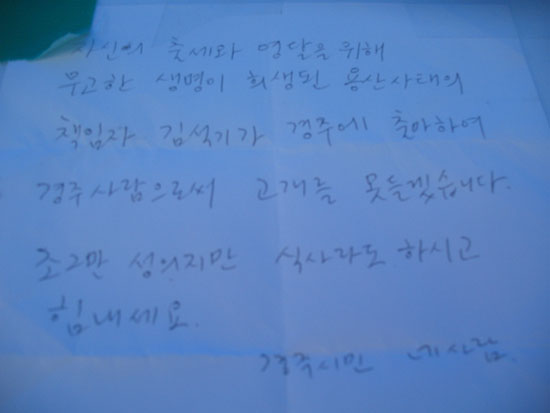 자신의 출세와 영달을 위해
무고한 생명이 희생된 용산사태의
책임자 김석기가 경주에 출마하여
경주사람으로써 고개를 못들겠습니다.
조그만 성의지만 식사라도 하시고
힘내세요.
경주시민 네사람.